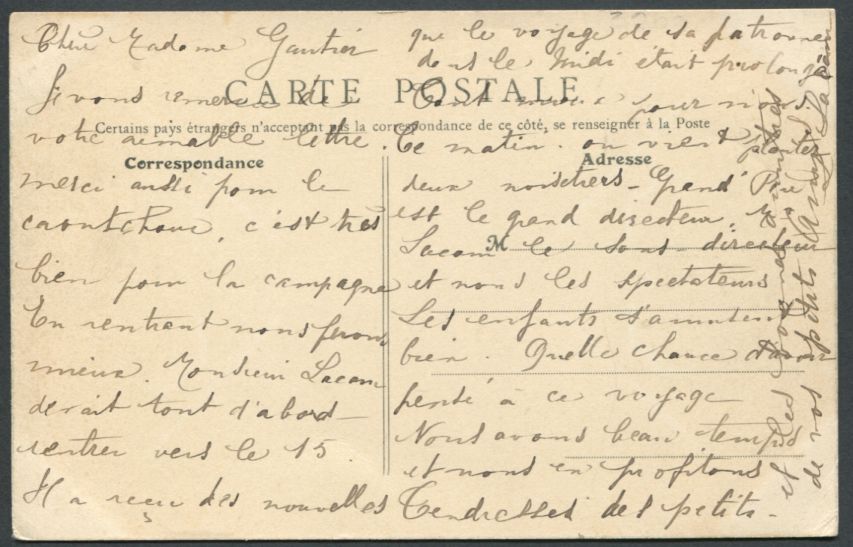 Chère Madame Gautier
Je vous remercie de
votre aimable lettre.
merci aussi pour le
caoutchouc, c'est très
bien pour la campagne
En rentrant nous ferons
mieux. Monsieur Lacam
devait tout d'abord
rentrer vers le 15.
Il a reçu des nouvelles
que le voyage de sa patronne
dans le Midi était prolongé
Tant mieux pour nous!
Ce matin on vient planter
deux noisetiers - Grand Père
est le grand directeur, M
Lacam le sous-directeur
et nous les spectateurs
Les enfants s'amusent
bien. Quelle chance d'avoir
pensé à ce voyage
Nous avons beau temps
et nous en profitons
Tendresses des petits -
et les grandes amitiés
de vos petits Lacam
CARTE POSTALE
Certains pays étrangers n'acceptant pas la correspondance de ce côté, se renseigner à la Poste
Correspondance
Adresse
M